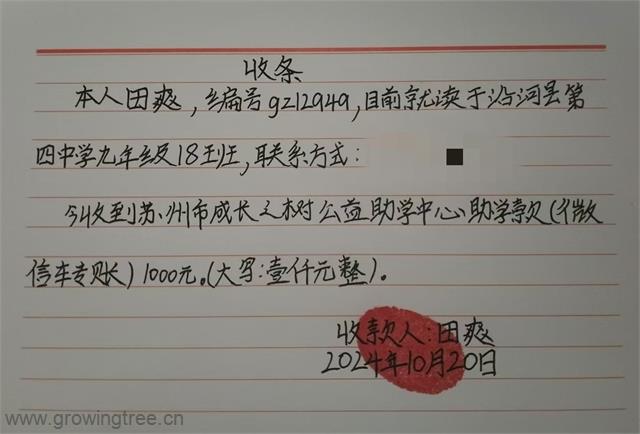 收条
本人田爽,编号gz12949,目前就读于沿河县第
四中学九年级18班,联系方式:
今收到苏州市成长之树公益助学中心助学款(微
信车专账)1000元。(大写:壹仟元整)。
收款人:田爽
2024年10月20日
www.growingtree.cn